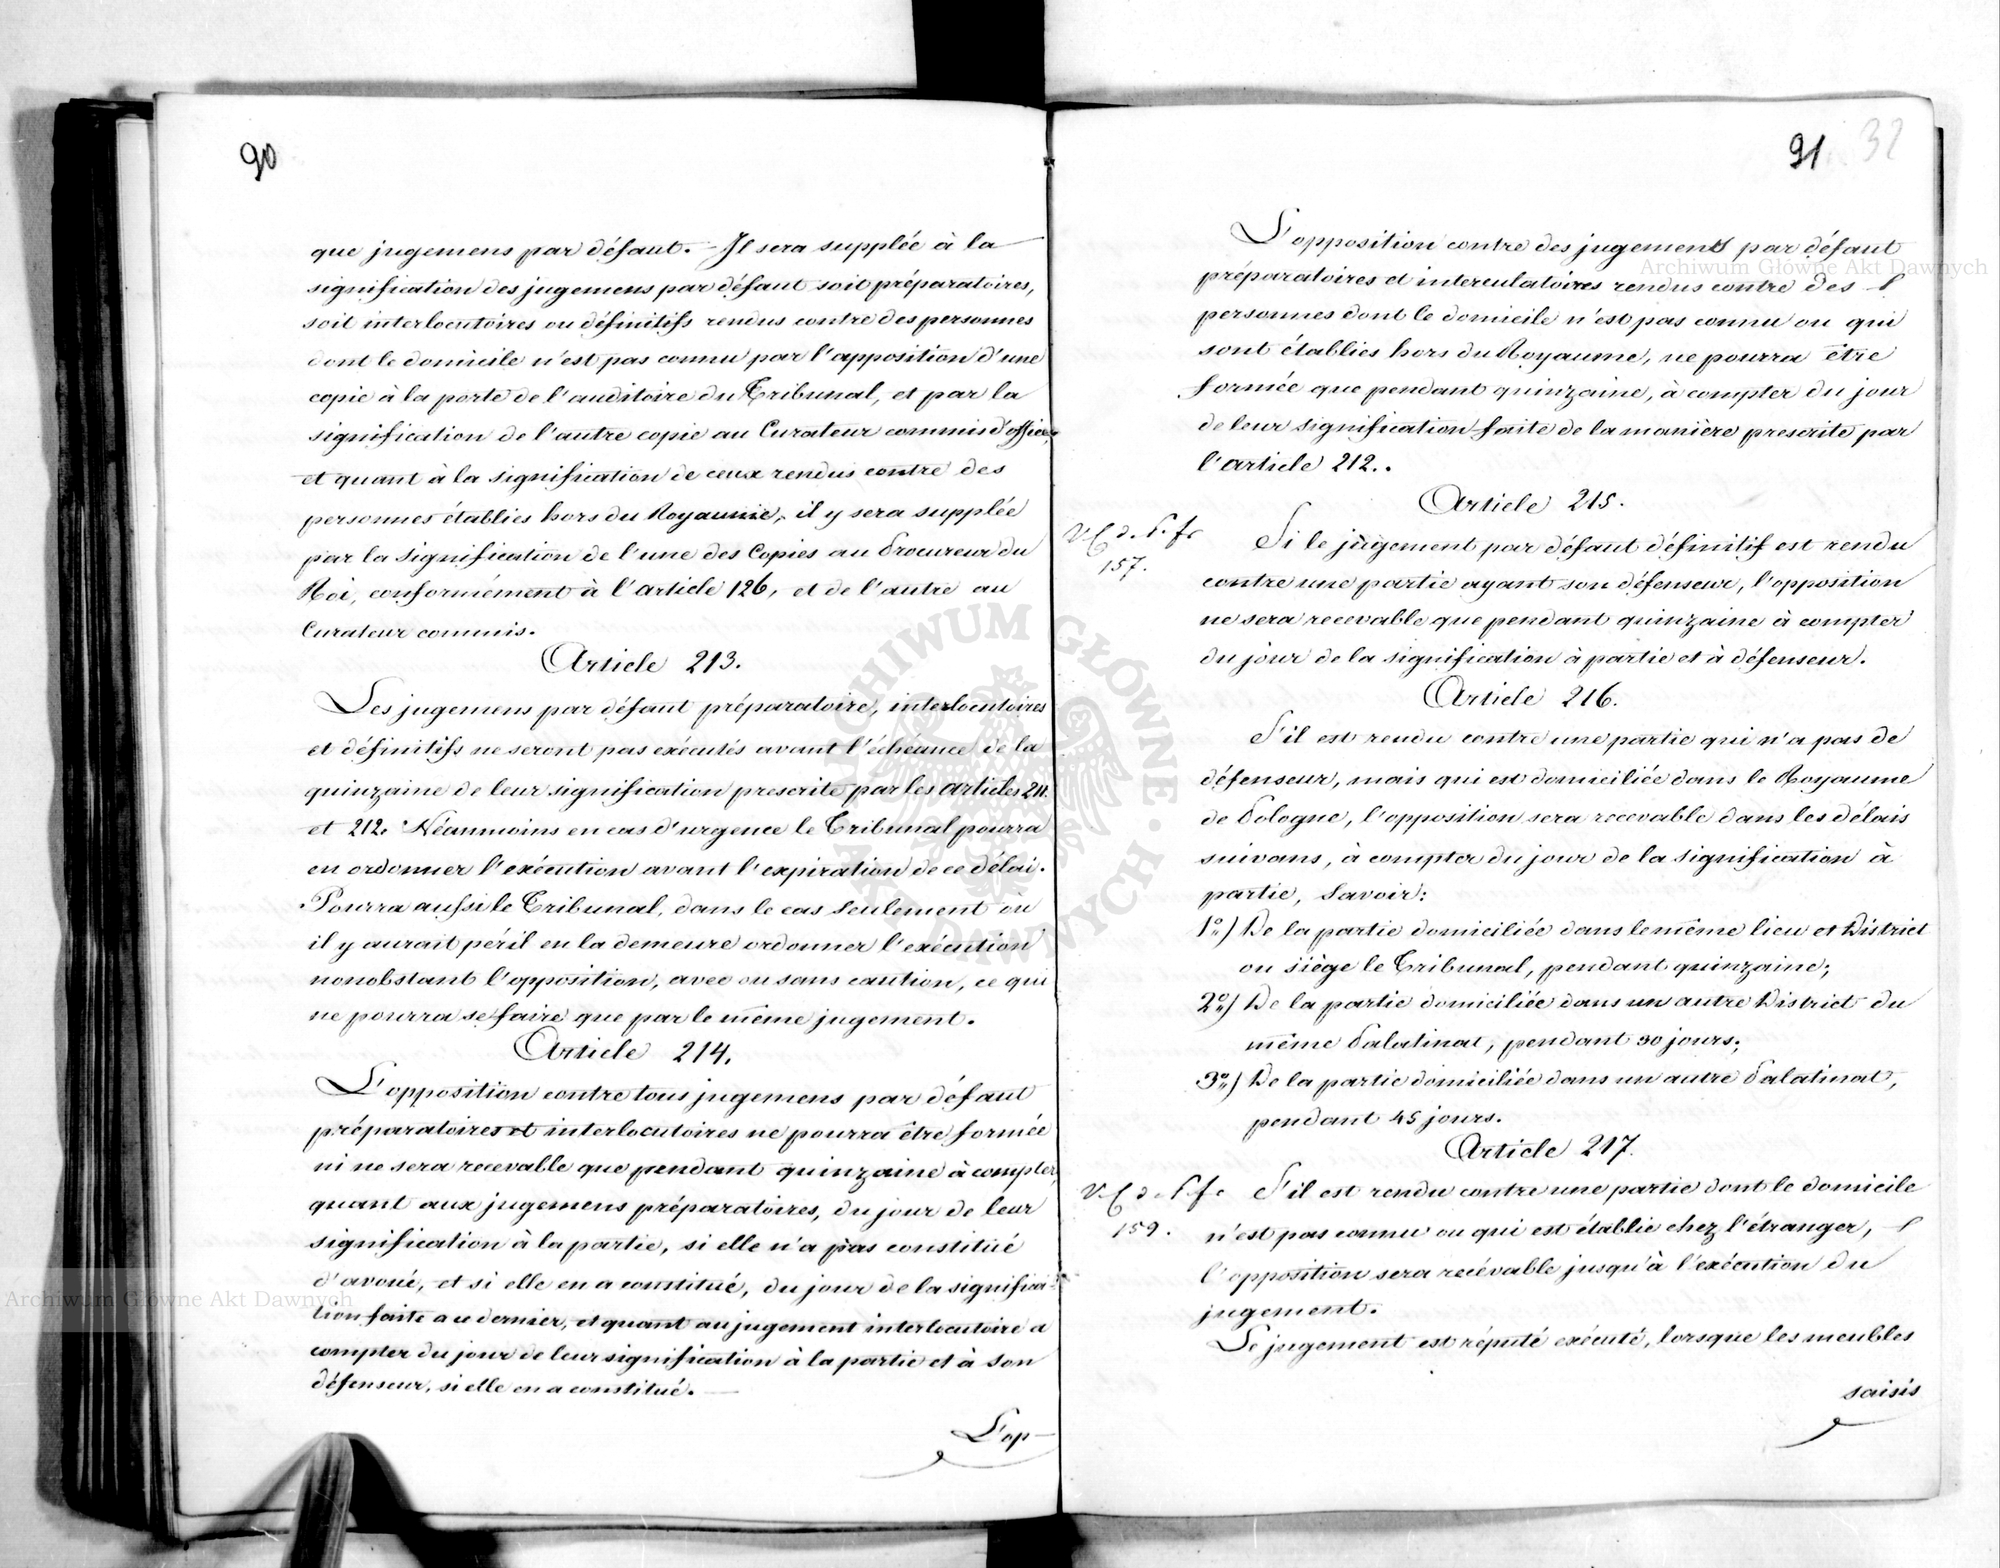 90
que jugemens par défaut. Il sera supplée à la
signification des jugemens par défaut soit préparatoires,
soit interlocutoires ou définitifs rendus contre des personnes
dont le domicile n'est pas connu par l'apposition d'une
copie à la porte de l'auditoire du Tribunal, et par la
signification de l'autre copie au Curateur commis d'office,
et quant à la signification de ceux rendus contre des
personnes établies hors du Royaume, il y sera supplée
par la signification de l'une des Copies au Procureur du
Roi, conformément à l'article 126, et de l'autre au
Curateur commis.
Article 213.
Les jugemens par défaut préparatoire, interlocutoires
et définitifs ne seront pas exécutés avant l'échéance de la
quinzaine de leur signification prescrite par les articles 211.
et 212. Néanmoins en cas d'urgence le Tribunal pourra
en ordonner l'exécution avant l'expiration de ce délai.
Pourra aussi le Tribunal, dans le cas seulement où
il y aurait péril en la demeure ordonner l'exécution
nonobstant l'opposition, avec ou sans caution, ce qui
ne pourra se faire que par le même jugement.
Article 214.
L'opposition contre tous jugemens par défaut
préparatoires et interlocutoires ne pourra être formée
ni ne sera recevable que pendant quinzaine à compter,
quant aux jugemens préparatoires, du jour de leur
signification à la partie, si elle n'a pas constitué
d'avoué, et si elle en a constitué, du jour de la significa-
tion faite a ce dernier, et quant au jugement interlocutoire a
compter du jour de leur signification à la partie et à son
défenseur, si elle en a constitué.
L'op-
91
32
L'opposition contre des jugements par défaut
préparatoires et interculatoires rendus contre des
personnes dont le domicile n'est pas connu ou qui
sont établies hors du Royaume, ne pourra être
formée que pendant quinzaine, à compter du jour
de leur signification faite de la manière prescrite par
l'article 212..
Article 215.
V. C. d. P. fr
157.
Si le jugement par défaut définitif est rendu
contre une partie ayant son défenseur, l'opposition
ne sera recevable que pendant quinzaine à compter
du jour de la signification à partie et à défenseur.
Article 216.
S'il est rendu contre une partie qui n'a pas de
défenseur, mais qui est domiciliée dans le Royaume
de Pologne, l'opposition sera recevable dans les délais
suivans, à compter du jour de la signification à
partie, Savoir:
1º) De la partie domiciliée dans le même lieu et District
ou siège le Tribunal, pendant quinzaine;
2º) De la partie domiciliée dans un autre District du
même Palatinat, pendant 30 jours;
3º) De la partie domiciliée dans un autre Palatinat,
pendant 45 jours.
Article 217.
V. C. d. P. fr
159.
S'il est rendu contre une partie dont le domicile
n'est pas connu ou qui est établie chez l'étranger,
l'opposition sera recévable jusqu'à l'exécution du
jugement.
Le jugement est réputé exécuté, lorsque les meubles
saisis
Archiwum Główne Akt Dawnych
Archiwum Główne Akt Dawnych
ARCHIWUM GŁÓWNE · AKT DAWNYCH ·